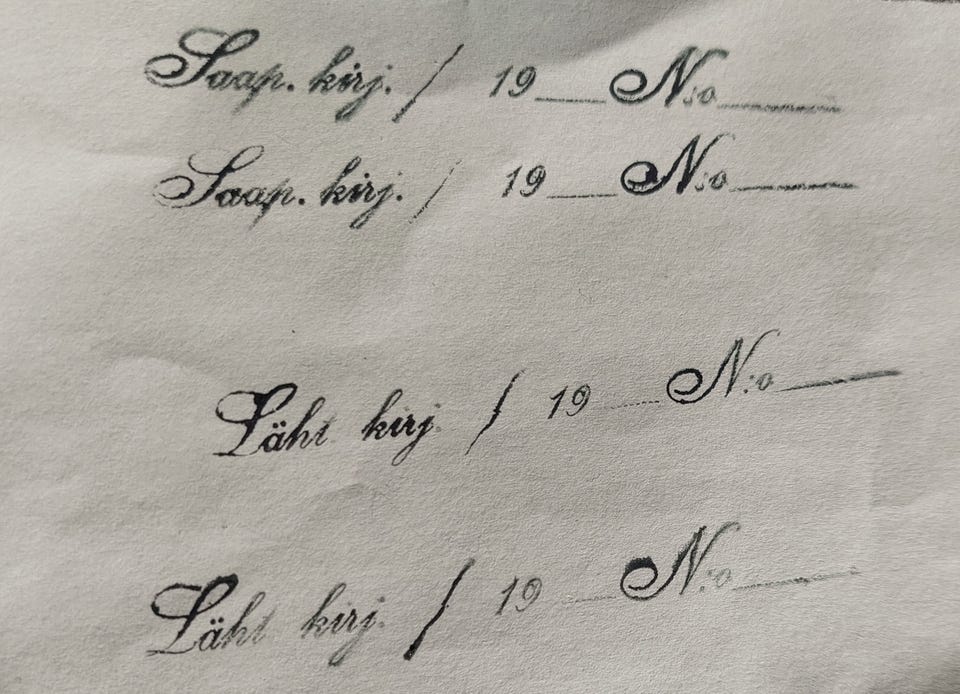 Saap. kirj. / 19___ N:o______
Saap. kirj. / 19___ N:o______
Läht kirj. / 19___ N:o______
Läht kirj. / 19___ N:o______